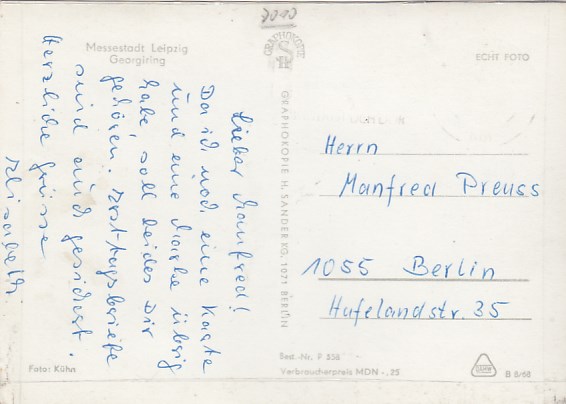 7010
Messestadt Leipzig
Georgiring
ECHT FOTO
GRAPHOKOPIE
GRAPHOKOPIE H. SANDER KG, 1071 BERLIN
Lieber Manfred!
Da ich noch eine Karte
und eine Marke übrig
habe soll beides Dir
gehören. Ersttagsbriefe
sind auch gesichert.
Herzliche Grüsse
Elisabeth
Herrn
Manfred Preuss
1055 Berlin
Hufelandstr. 35
Foto: Kühn
Best.-Nr. P 336
Verbraucherpreis MDN -,25
B 8/68